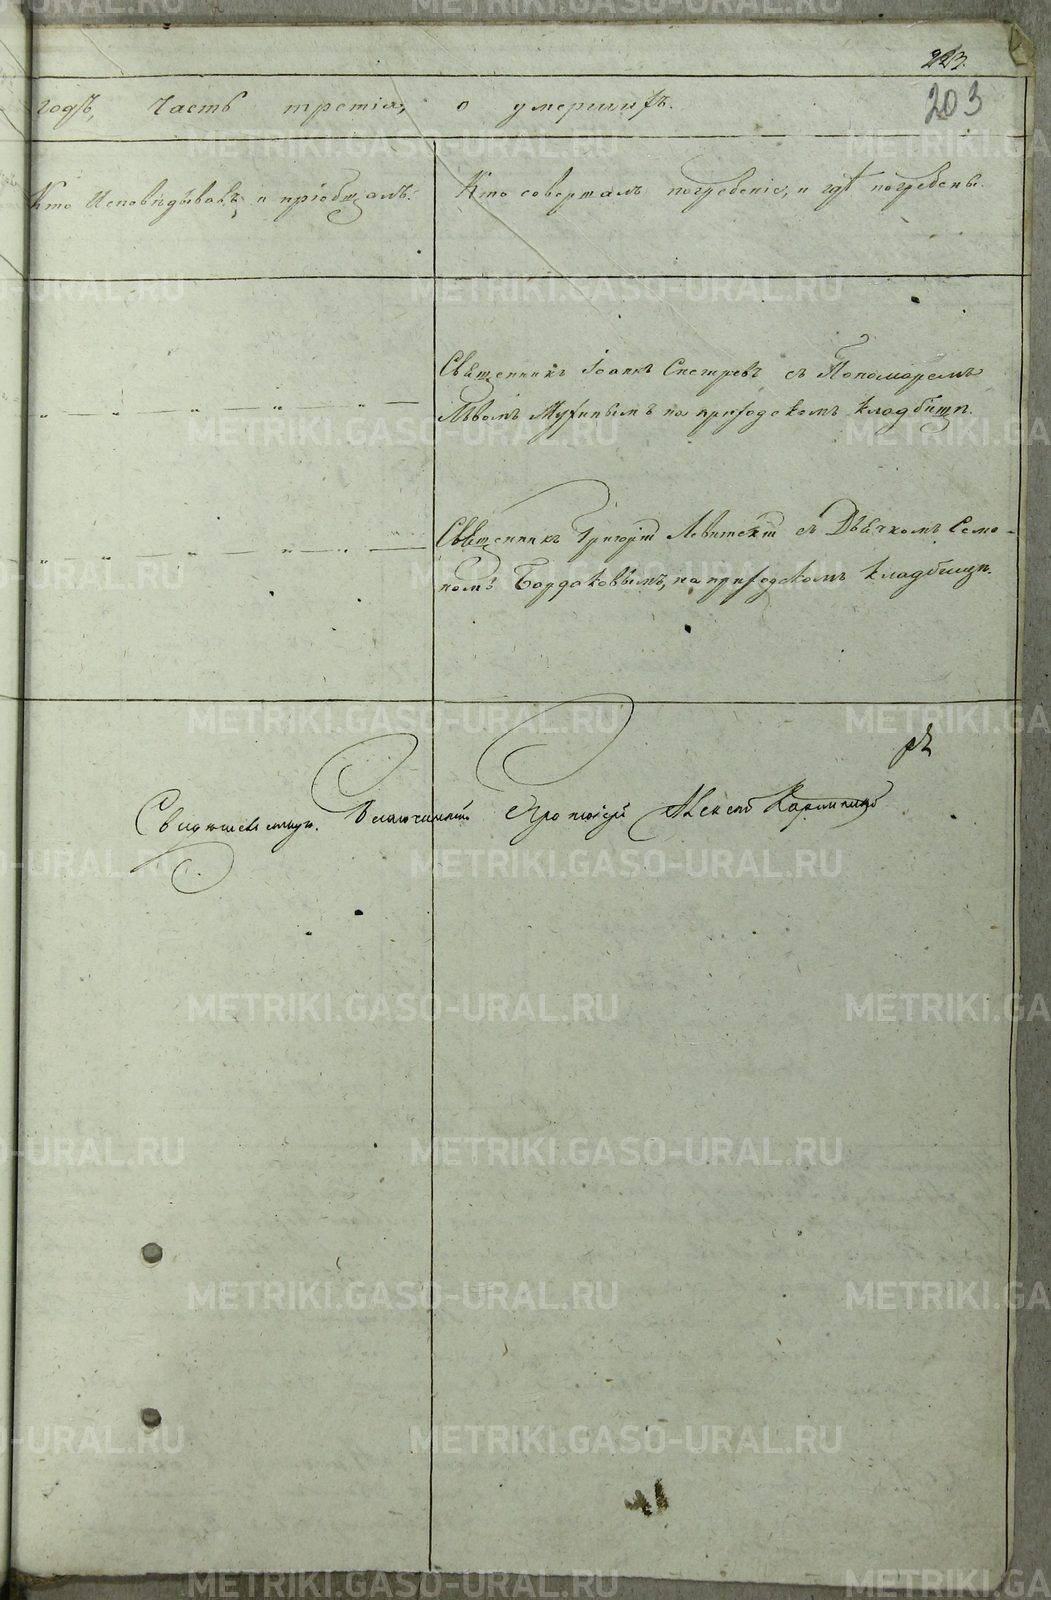 223.
203
годъ, часть третія, о умершихъ.
Кто Исповѣдывалъ и пріобщалъ.
Кто совершалъ погребеніе, и гдѣ погребены.
Священникъ Іоаннъ с Пономаремъ
Львомъ Мухинымъ на приходскомъ кладбищѣ.
Священникъ Григорій Левитскій съ Дьячкомъ Семе-
номъ Бордаковымъ, на приходскомъ кладбищѣ.
Свидѣтельствую. Благочинный Протоіерей Алексѣй
METRIKI.GASO-URAL.RU